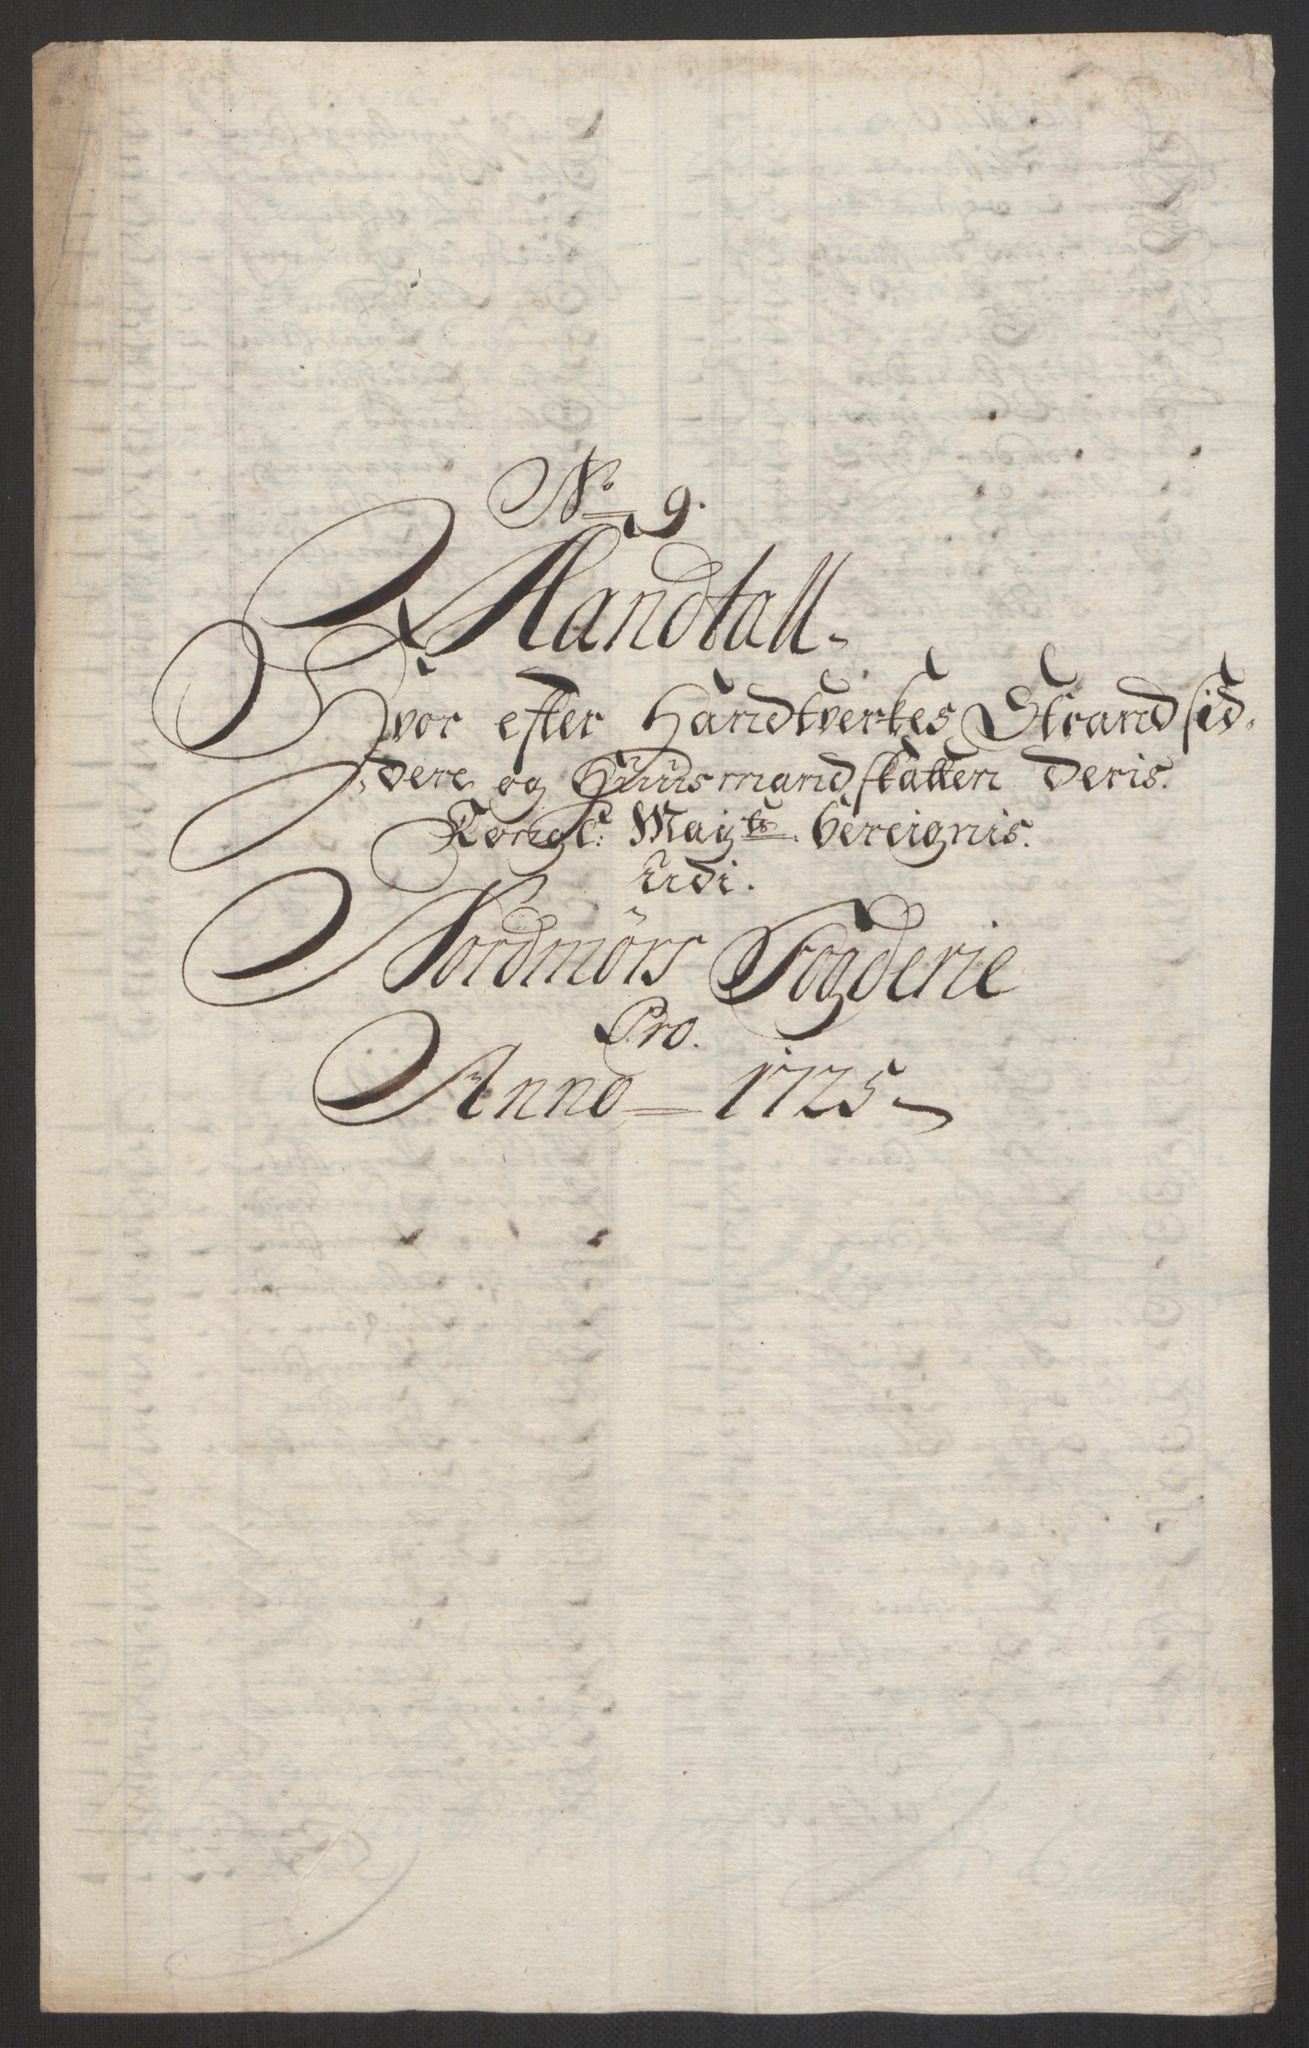 No 9.
Mandtall
Hvor efter Handtverkes Strandsid,
dere og Huusmandskatten Deris
Kongl: Mayts bereignis.
Udi.
Nordmørs Fogderie
Pro.
Anno 1725